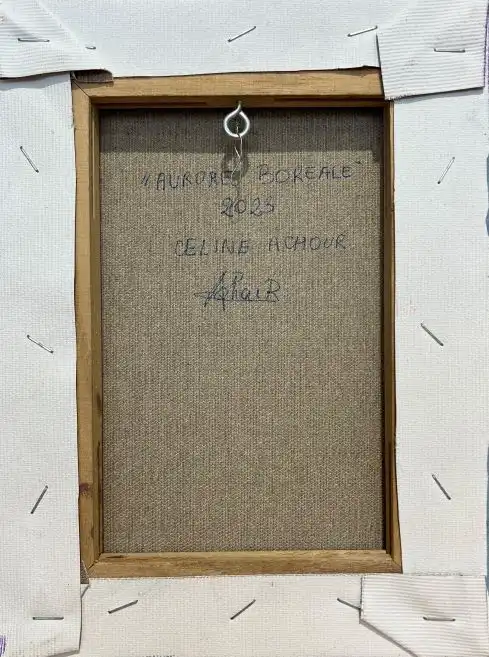 "AURORE BOREALE"
2023
CELINE ACHOUR